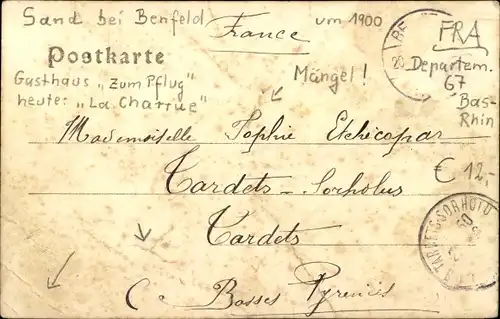 Sand bei Benfeld um 1900
France
FRA
Postkarte
Departem.
67
Bas-
Rhin
Gasthaus "Zum Pflug"
Mängel!
heute: "La Charrue"
€ 12,-
Mademoiselle Sophie Etchecopar
Tardets-Sorholus
Tardets
Basses Pyrenées
TARDETS-SORHOLUS